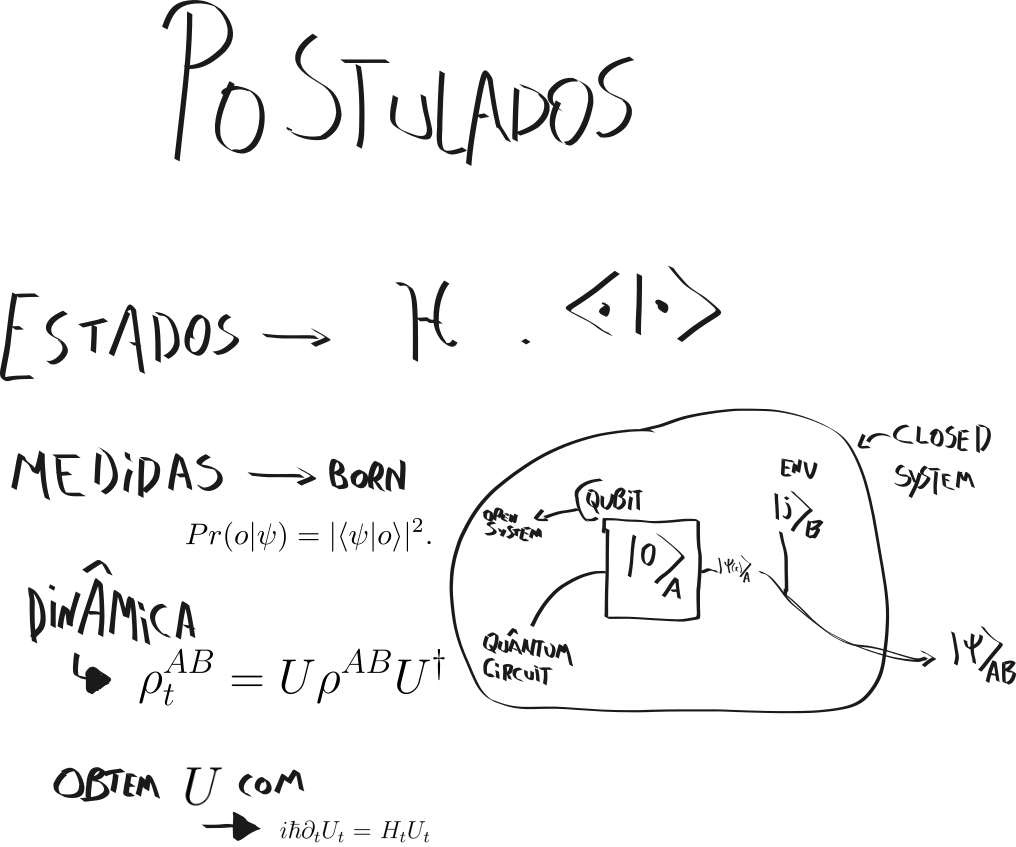 POSTULADOS
ESTADOS → H . ⟨·|·⟩
MEDIDAS → BORN
Pr(o|ψ) = |⟨ψ|o⟩|².
DINÂMICA
ρ_t^{AB} = Uρ^{AB}U^†
OBTEM U COM
→ iħ∂_tU_t = H_tU_t
CLOSED
SYSTEM
ENV
|j⟩_B
QUBIT
OPEN
SYSTEM
|0⟩_A
|Ψ(t)⟩_A
QUÂNTUM
CIRCUIT
|Ψ⟩_AB